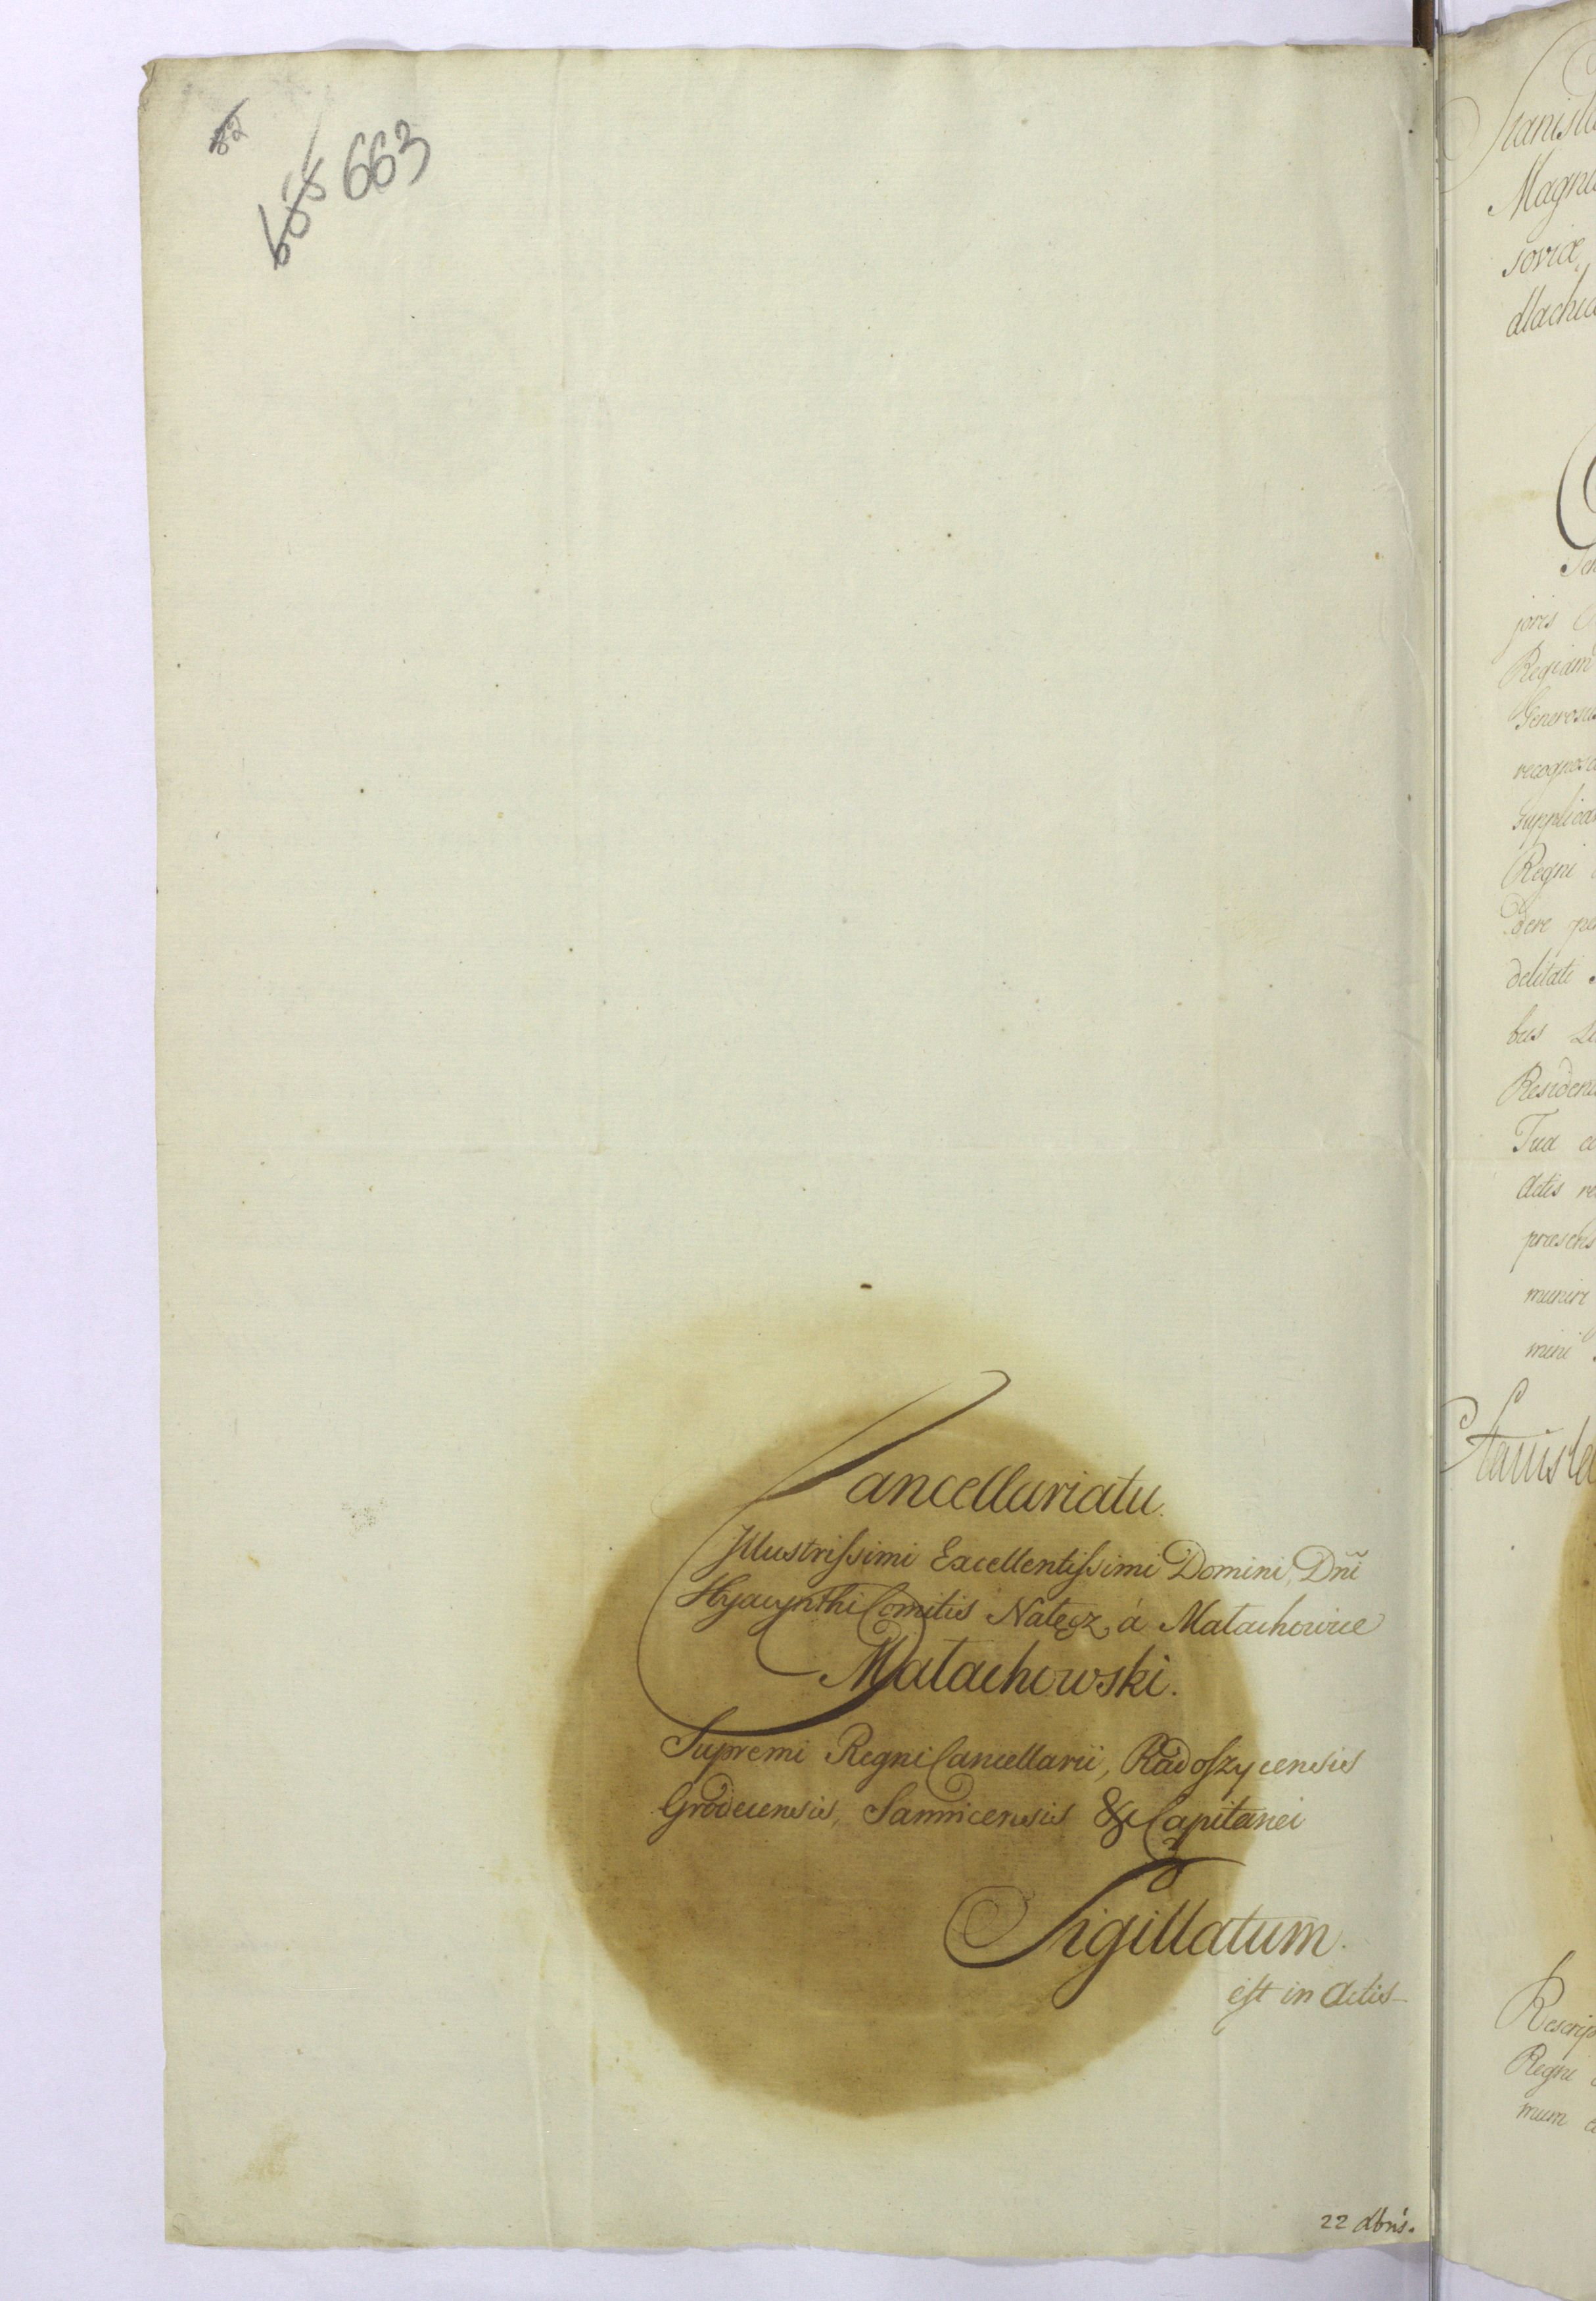 663
Cancellariatu.
Jllustrissimi Excellentissimi Domini, Dn̄i
Hyacynthi Comitis Natęcz, á Matachowice
Matachowski.
Supremi Regni Cancellarii, Radoszycensis
Grodecensis, Sannicensis & Capitanei
Sigillatum.
est in Actis
22 Xbris.
Stanisla
Magnu
soviæ,
dlachiæ
joris
Regiam
Generosu
recognosc
supplica
Regni
dere pe
delitati
bus
Residen
Tua
Actis re
præsens
muniri
mini
Stanisla
Rescrip
Regni
mum